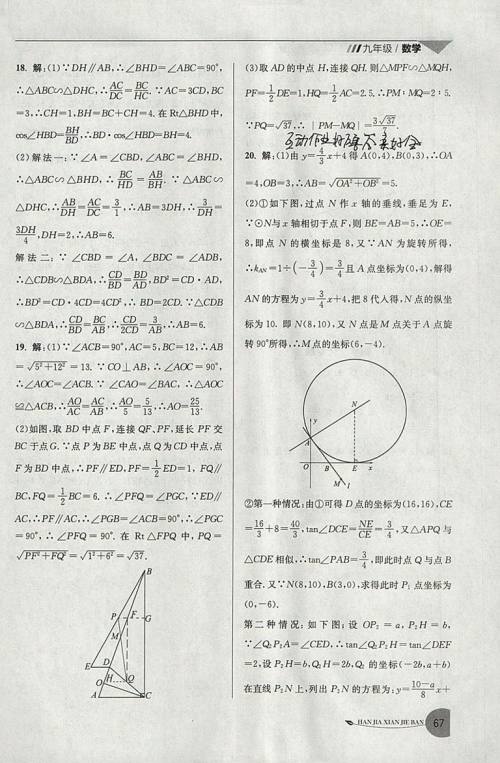 九年级/数学
18. 解:(1)∵DH∥AB,∴∠BHD=∠ABC=90°,
∴△ABC∽△DHC,∴AC/DC=BC/HC.∵AC=3CD,BC
=3,∴CH=1,BH=BC+CH=4.在Rt△BHD中,
cos∠HBD=BH/BD,∴BD·cos∠HBD=BH=4.
(2)解法一:∵∠A=∠CBD,∠ABC=∠BHD,
∴△ABC∽△BHD,∴BC/HD=AB/BH.∵△ABC∽
△DHC,∴AB/DH=AC/DC=3/1,∴AB=3DH,∴3/DH=
3DH/4,DH=2,∴AB=6.
解法二:∵∠CBD=∠A,∠BDC=∠ADB,
∴△CDB∽△BDA,∴CD/BD=BD/AD,BD²=CD·AD,
∴BD²=CD·4CD=4CD²,∴BD=2CD.∵△CDB
∽△BDA,∴CD/BD=BC/AB,∴CD/2CD=3/AB,∴AB=6.
19. 解:(1)∵∠ACB=90°,AC=5,BC=12,∴AB
=√(5²+12²)=13.∵CO⊥AB,∴∠AOC=90°,
∴∠AOC=∠ACB.∵∠CAO=∠BAC,∴△AOC
∽△ACB,∴AO/AC=AC/AB,∴AO/5=5/13,∴AO=25/13.
(2)如图,取BD中点F,连接QF、PF,延长PF交
BC于点G.∵点P为BE中点,点Q为CD中点,点
F为BD中点,∴PF∥ED,PF=1/2ED=1,FQ∥
BC,FQ=1/2BC=6.∴∠PFQ=∠PGC,∵ED∥
AC,∴PF∥AC,∴∠PGB=∠ACB=90°,∴∠PGC
=90°,∴∠PFQ=90°.在Rt△PFQ中,PQ=
√(PF²+FQ²)=√(1²+6²)=√37.
B
P F G
M
E D
H Q
A C
(3)取AD的中点H,连接QH.则△MPF∽△MQH,
PF=1/2DE=1,HQ=1/2AC=2.5.∴PM:MQ=2:5.
∵PQ=√37,∴|PM-MQ|=3√37/7.
20. 解:(1)由y=4/3x+4得A(0,4),B(0,3),∴OA
=4,OB=3,∴AB=√(OA²+OB²)=5.
(2)①如下图,过点N作x轴的垂线,垂足为E,
∵⊙N与x轴相切于点F,则BE=AB=5,∴OE=
8,即点N的横坐标是8,又∵AN为旋转所得,
∴k_AN=1÷(-3/4)=3/4且A点坐标为(0,4),解得
AN的方程为y=3/4x+4,把8代入得,N点的纵坐
标为10.即N(8,10),又N点是M点关于A点旋
转90°所得,∴M点的坐标(6,-4).
y
N
A
O B E x
M l
②第一种情况:由①可得D点的坐标为(16,16),CE
=16/3+8=40/3,tan∠DCE=NE/CE=3/4,又△APQ与
△CDE相似,∴tan∠PAB=3/4,即此时点Q与点B
重合.又∵N(8,10),B(3,0),求得此时P₁点坐标为
(0,-6).
第二种情况:如下图:设OP₂=a,P₂H=b,
∵∠Q₂P₂A=∠CED,∴tan∠Q₂P₂H=tan∠DEF
=2,设P₂H=b,Q₂H=2b,Q₂的坐标(-2b,a+b)
在直线P₂N上,列出P₂N的方程为:y=(10-a)/8 x+
HAN JIA XIAN JIE BAN
67